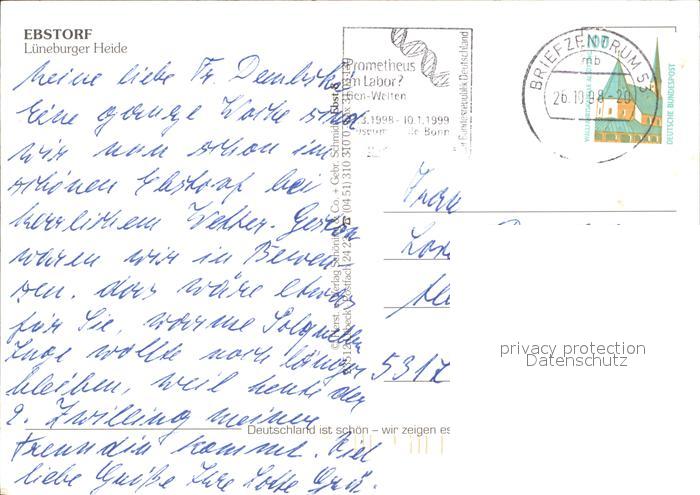 EBSTORF
Lüneburger Heide
Meine liebe Fr. Dembski
Eine ganze Woche sind
wir nun schon im
schönen Ebstorf bei
herrlichem Wetter. Gestern
waren wir in Beven
sen. das wäre etwas
für Sie, warme Solquelle
Inge wollte noch länger
bleiben, weil heute der
2. Zwilling meiner
Freundin kommt. Viel
liebe Grüße Ihre Lotte
Prometheus
im Labor?
Gen-Welten
3.1998 - 10.1.1999
Bonn
Bundesrepublik Deutschland
BRIEFZENTRUM 53
mb
26.10.98-20
100
DEUTSCHE BUNDESPOST
Frau
5317
privacy protection
Datenschutz
Deutschland ist schön – wir zeigen es